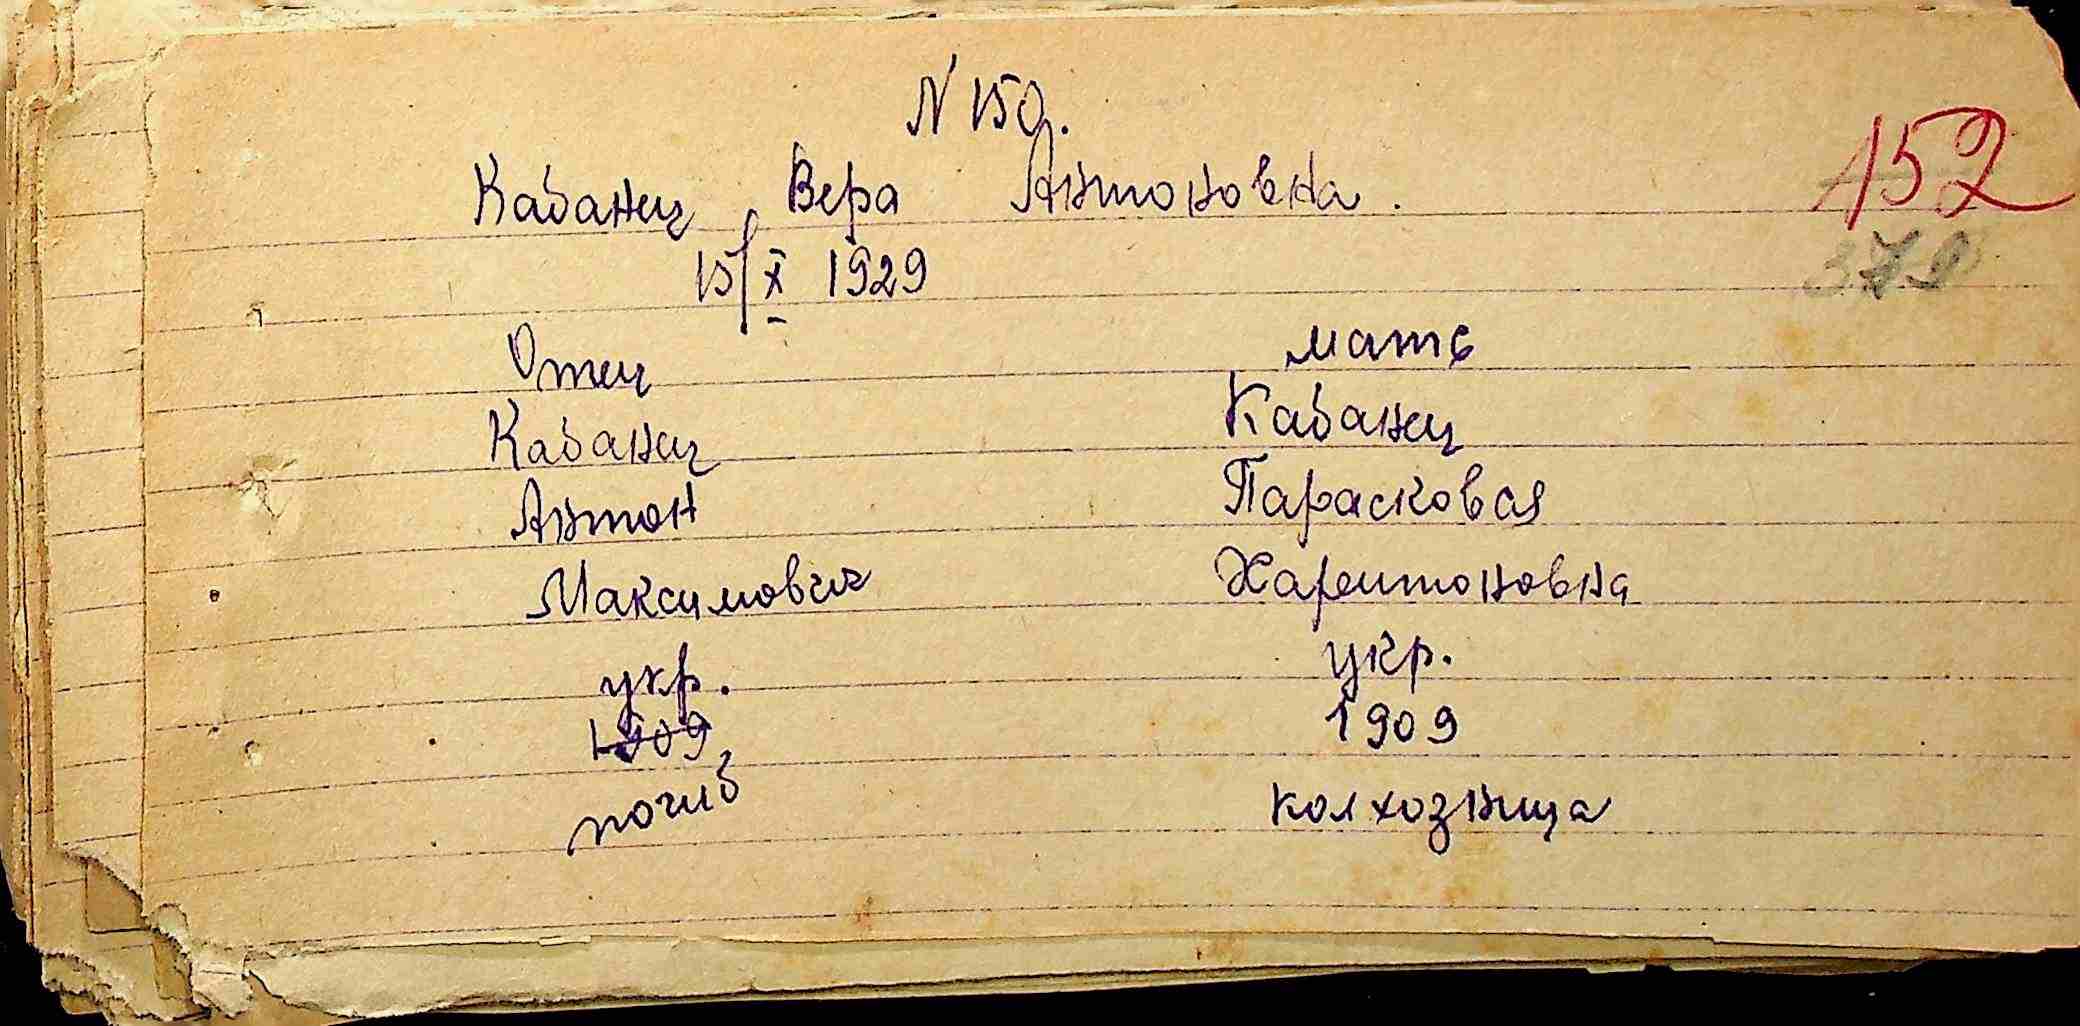 N 150.
152
Кабанец Вера Антоновна.
15/X 1929
Отец мать
Кабанец Кабанец
Антон Парасковя
Максимович Харитоновна
укр. укр.
1909 1909
погиб колхозница